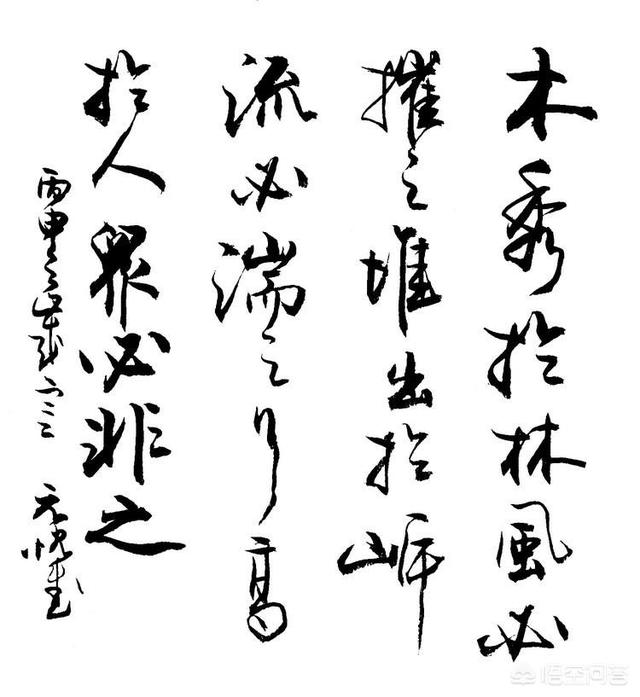 木秀於林風必
摧之堆出於岸
流必湍之行高
於人眾必非之
丙申之歲
悟空问答